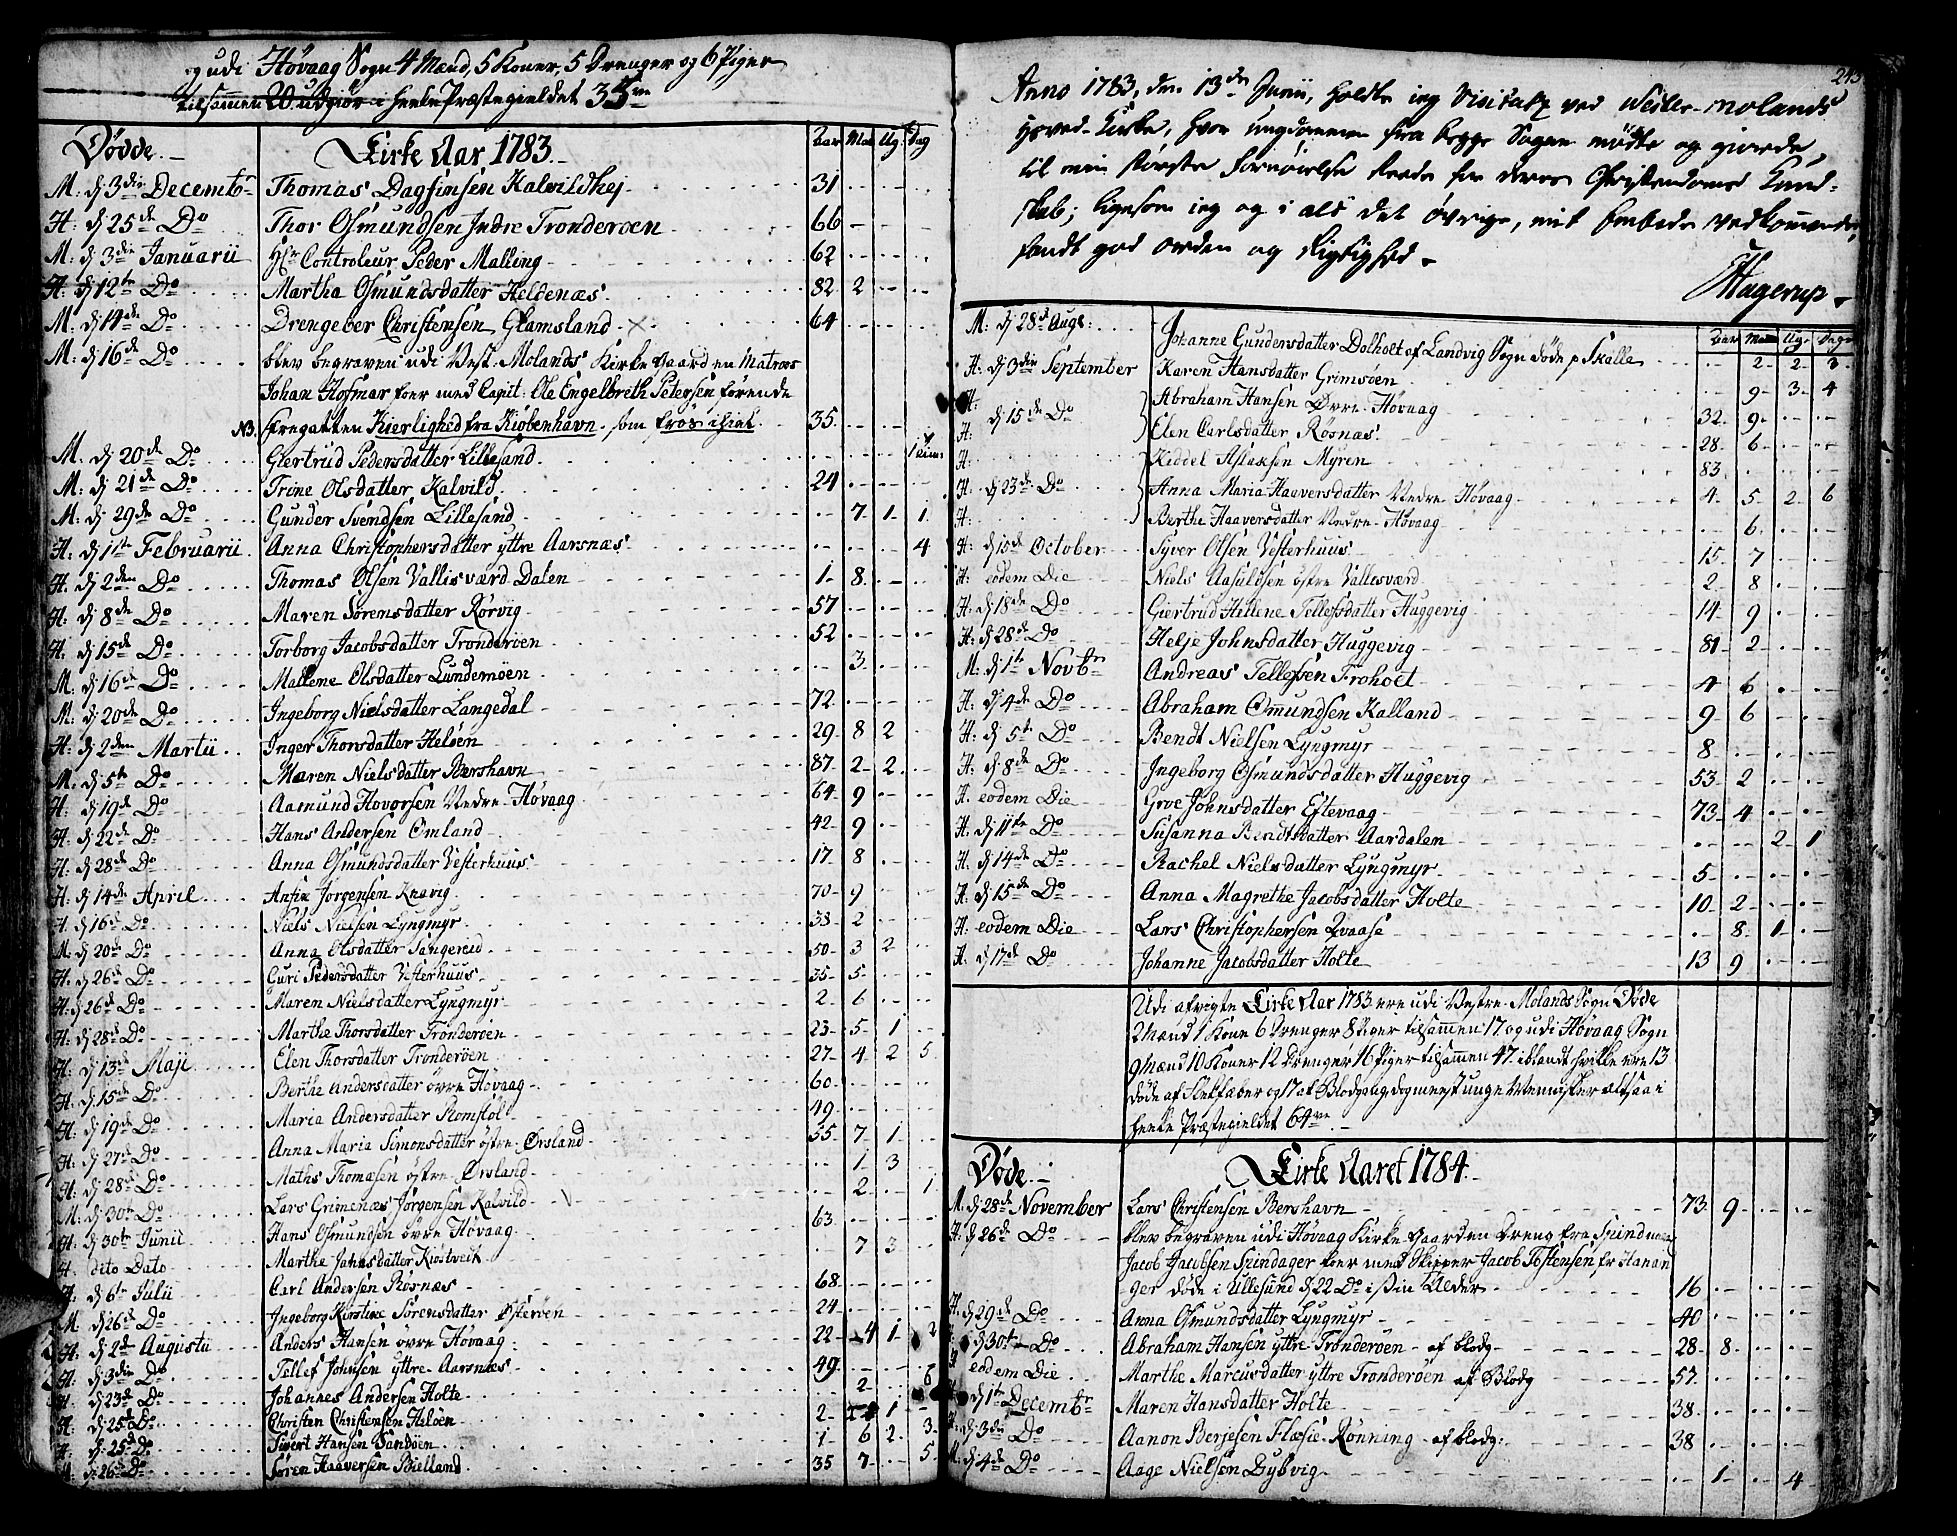 og udi Høvaag Sogn 4 Mænd, 5 Koner, 5 Drenger og 6 Piger
tilsamen 20 udgiør i heele Præstegieldet 35
Døde. Kirke Aar 1783. Aar Maa Ug. Dag
M: d 3die Decembr Thomas Dagfinsen Kalvildhej 31
H: d 25de Do Thor Osmundsen Indre Tronderøen 66
M: d 3die Januarii Hr Controleur Peder Malling 62
H: d 12te Do Martha Osmundsdatter Heldenæs 82 2
M: d 14de Do Drengeber Christensen Glamsland 64
M: d 16de Do blev begraven udi Vest. Molands Kirke Gaard en Matros
Johan Hofmar foer med Capit: Ole Engelbreth Petersen førende
NB. Fregatten Kierlighed fra Kiøbenhavn som frøs ihiel 35
M. d 20de Do Giertrud Pedersdatter Lillesand 1
M: d 21de Do Trine Olsdatter Kalvild 24
M: d 29de Do Gunder Svendsen Lillesand 7 1 1
H: d 1te Februarii Anna Christophersdatter yttre Aarsnæs 4
H: d 2den Do Thomas Olsen Vallisværd Dalen 1 8
H: d 8de Do Maren Sørensdatter Rørvig 57
H. d 15de Do Torborg Jacobsdatter Tronderøen 52
M: d 16de Do Mallene Olsdatter Lundemøen 3
M: d 20de Do Ingeborg Nielsdatter Langedal 72
H: d 2den Martii Inger Thorsdatter Heløen 29 8 2
M: d 5te Do Maren Nielsdatter Bershavn 87 2 2
H: d 19de Do Aamund Hovorsen Nedre Høvaag 64 9
H: d 22de Do Hans Andersen Omland 42 9
H: d 28de Do Anna Osmundsdatter Vesterhuus 17 8
H: d 14de April Anfin Jørgensen Knavig 70 9
H. d 16de Do Niels Nielsen Lyngmyr 38 2
M: d 20de Do Anna Olsdatter Tangereid 50 3 2
H: d 26de Do Guri Pedersdatter Vesterhuus 35 5
H: d 26de Do Maren Nielsdatter Lyngmyr 2 6
H: d 28de Do Marthe Thorsdatter Tronderøen 23 5 1
H: d 13de Maji Elen Thorsdatter Tronderøen 27 4 2 5
H: d 15de Do Berthe Andersdatter øvre Høvaag 60
H: d 19de Do Maria Andersdatter Romsløl 49
H: d 27de Do Anna Maria Simonsdatter østre Ørsland 55 7 1
H: d 28de Do Maths Thomæsen østre Ørsland 1 3
M: d 30te Do Lars Grimenæs Jørgensen Kalvild 2 1
H: d 30te Junii Hans Osmundsen øvre Høvaag 63
H dito Dato Marthe Johnsdatter Kiøstveit 7 3
H: d 6te Julii Carl Andersen Rosnæs 68
M d 26de Do Ingeborg Kirstine Sørensdatter Østerøen 24
H: d 2den Augustii Anders Hansen øvre Høvaag 22 4 1 2
H: d 3die Do Tellef Johnsen yttre Aarsnæs 49
H: d 23de Do Johannes Andersen Holte 2 6
H: d 25de Do Christen Christensen Heløen 2 1
H: d: 25de Do Sivert Hansen Sandøen 1 6 2 3
H: d: 26de Do Søren Haaversen Bielland 35 7 5
243
Anno 1783, den 13de Junii, holdte ieg Visitatz ved Vester-Molands
Hoved-Kirke, hvor ungdommen fra begge Sogne mødte og giorde
til min største Fornøielse Reede for deres Christendoms Kund-
skab; ligesom ieg og i alt det øvrige, mit Embede vedkommende,
fandt god orden og Rigtighed.
Hagerup.
Aar Maan Ug. Dage
M: d 28de Augs: Johanne Gundersdatter Dolholt af Landvig Sogn døde p Skalle 2 2 3
H: d 3die September Karen Hansdatter Grimsøen 9 3 4
H: Abraham Hansen Øvre Høvaag 32 9
H: d 15de Do Elen Carlsdatter Røsnæs 28 6
H: Kiddel Aslaksen Myren 83
H: d 23de Do Anna Maria Haaversdatter Nedre Høvaag 4 5 2 6
H: Berthe Haaversdatter Nedre Høvaag 6
H: d 15de October Syver Olsen Vesterhuus 15 7
H: eodem Die Niels Aasuldsen østre Vallesværd 2 8
H: d 18de Do Giertrud Hellene Tellefsdatter Huggevig 14 9
H: d 28de Do Helje Johnsdatter Huggevig 81 2
M: d 1te Novbr Andreas Tellefsen Froholt 4 6
H: d 4de Do Abraham Omundsen Kalland 9 6
H: d 5te Do Bendt Nielsen Lyngmyr 8
H: d 8de Do Ingeborg Osmundsdatter Huggevig 53 2
H. eodem Die Groe Johnsdatter Eftevaag 73 4
H: d 11te Do Susanna Bendtsdatter Aardalen 2 1
H: d 14de Do Rachel Nielsdatter Lyngmyr 5
H: d 15de Do Anna Magrethe Jacobsdatter Holte 10 2
H: eodem Die Lars Christophersen Qvaase 8 1
H. d 17de Do Johanne Jacobsdatter Holte 13 9
Udi afvigte Kirke Aar 1783 ere udi Vestre Molands Sogn Døde
2 Mænd 1 Kone 6 Drenger 8 Piger tilsammen 17 og udi Høvaag Sogn
9 Mænd 10 Koner 12 Drenger 16 Piger tilsammen 47. iblandt hvilke ere 13
døde af Flekfæber og 17 af Blodgang dog meest unge Mennisker altsaa i
heele Præstegieldet 64
Døde. Kirke Aaret 1784.
M. d 28de November Lars Christensen Bershavn 73 9
H: d 26de Do blev begraven udi Høvaag Kirke Gaard en Dreng fra
Jacob Jacobsen Spindager foer med Skipper Jacob Tostensen fr Hanan
ger døde i Ullesund d 22 Do i sin Alder 16
H: d 29de Do Anna Osmundsdatter Lyngmyr 40
d 30te Do Abraham Hansen yttre Tronderøen af blodg 28 8
eodem Die Marthe Marcusdatter yttre Tronderøen af Blodg 57
d 1te Decembr Maren Hansdatter Holte 38
H: d 3die Do Aanon Berjesen Flæsie-Rønning af blodg: 38
M. d 4de Do Aage Nielsen Dybvig 1 4